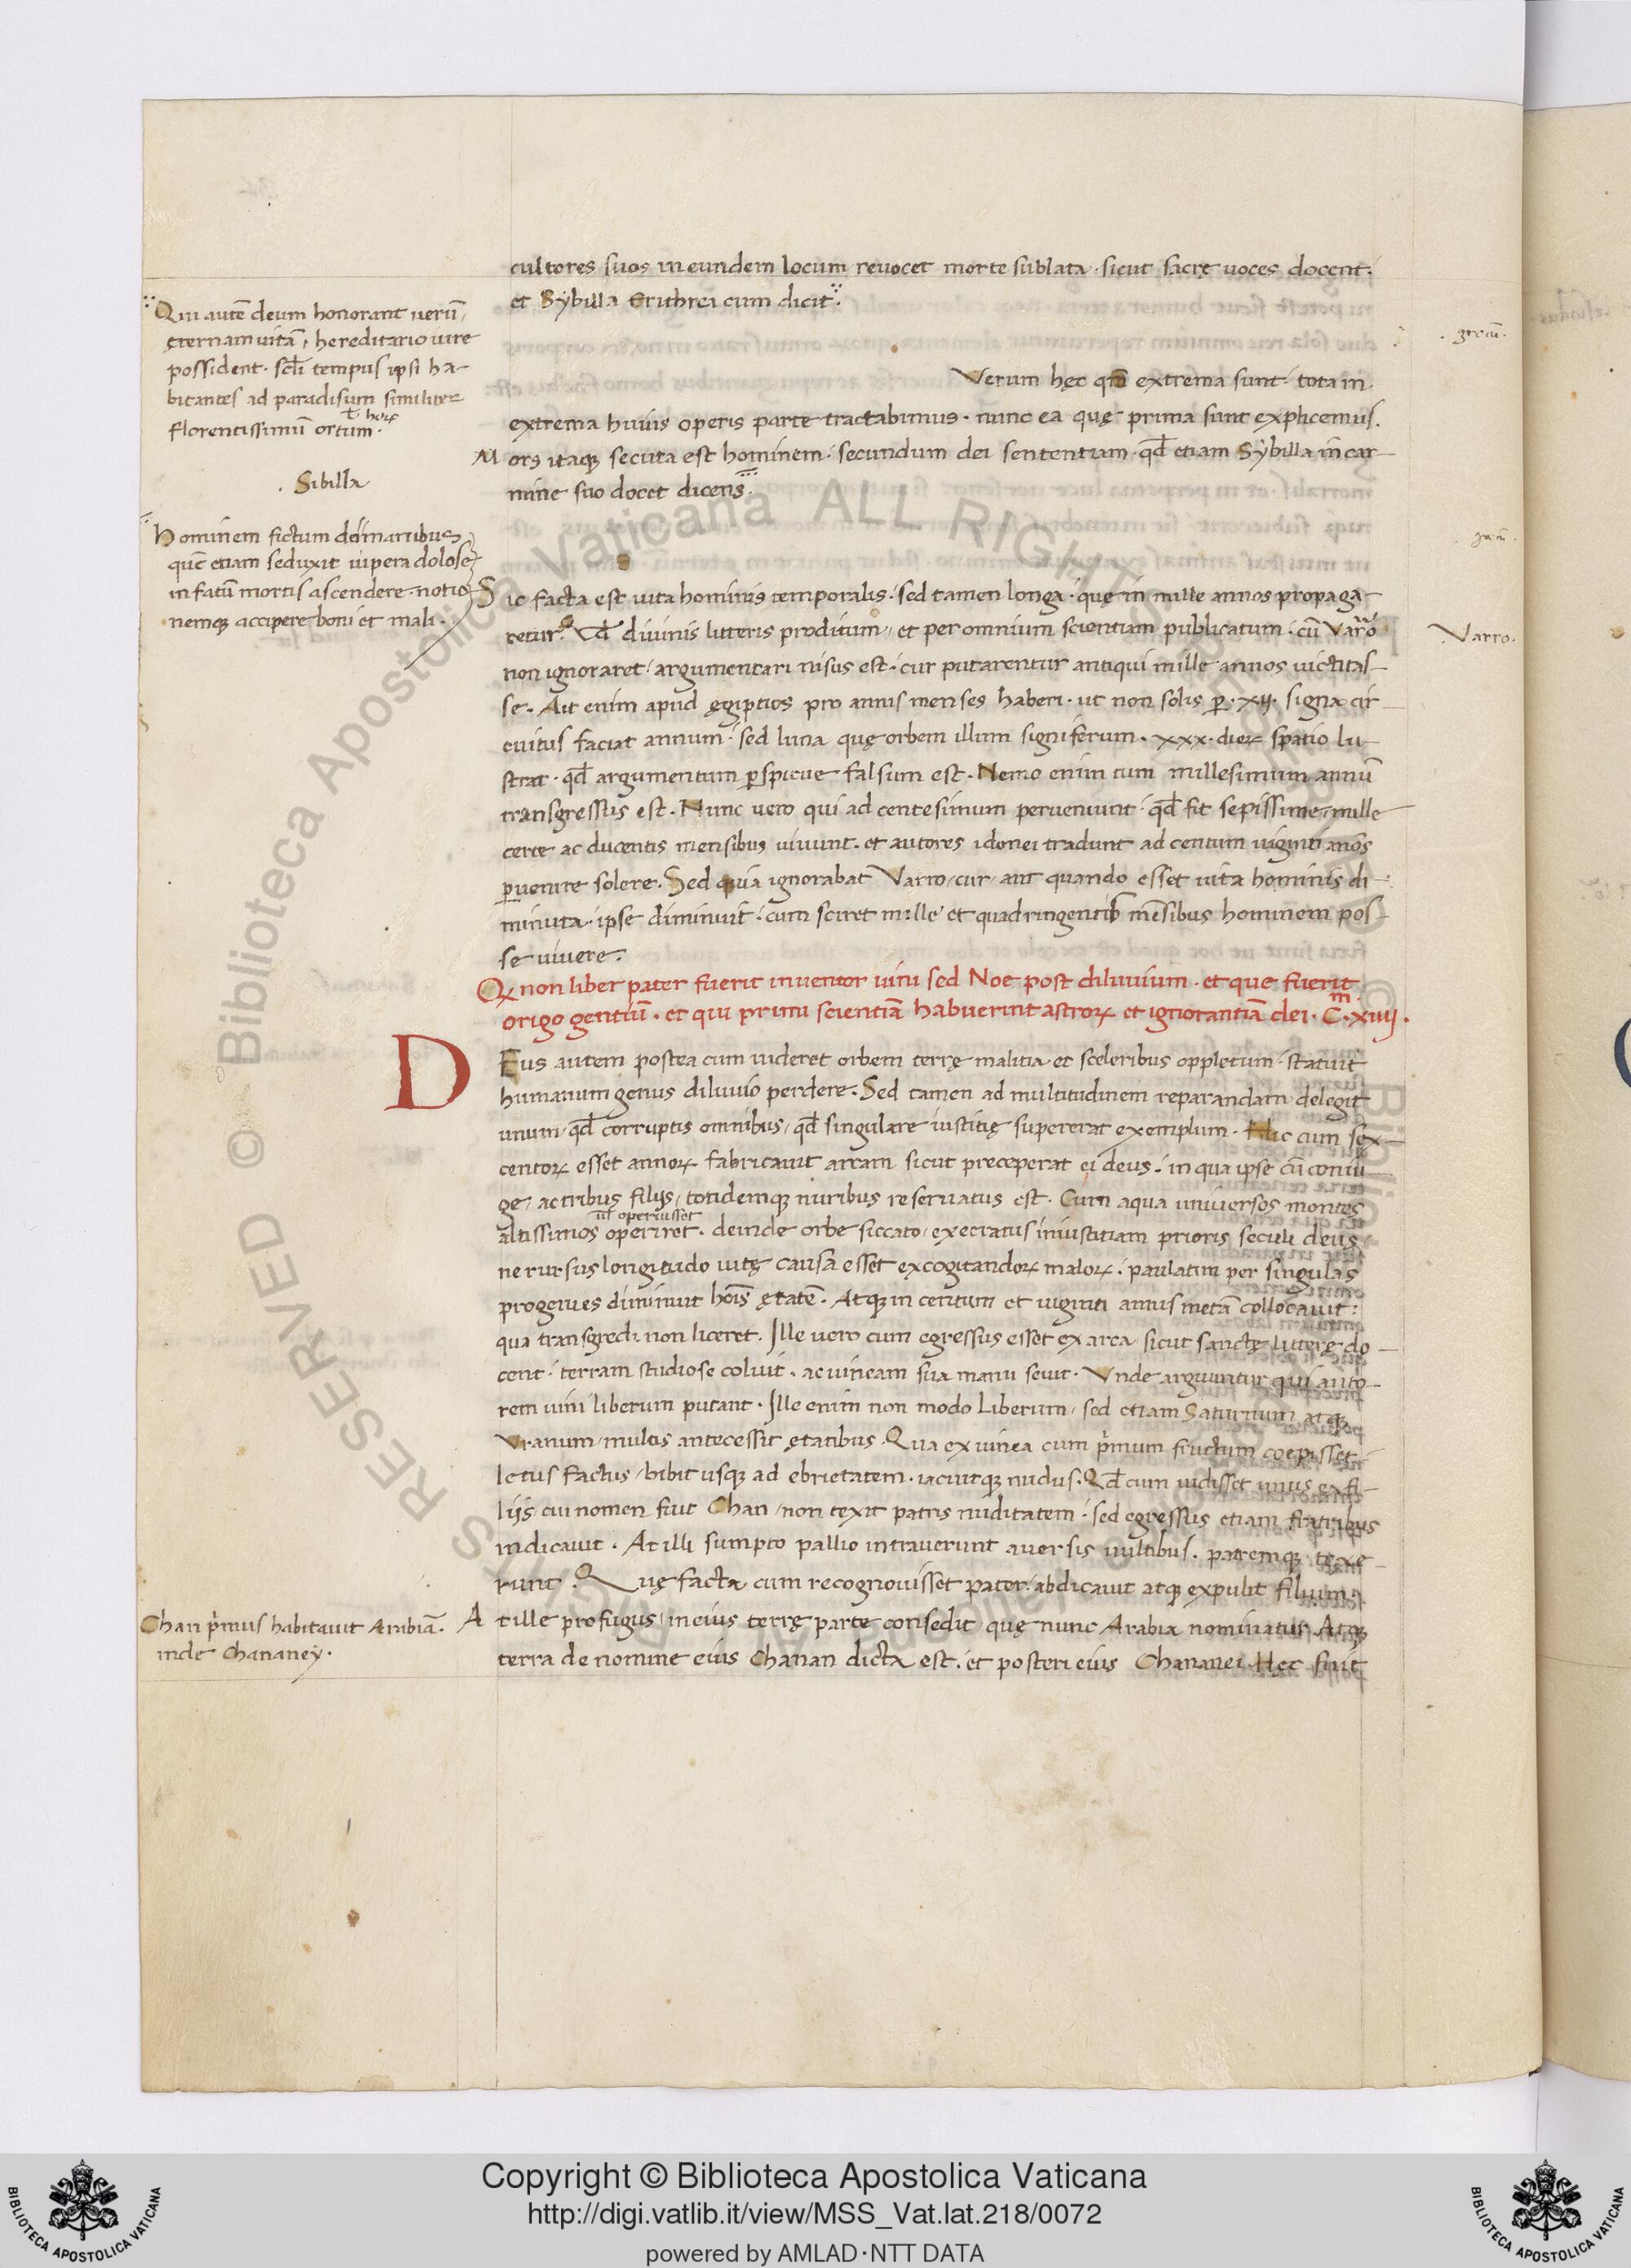 cultores suos in eundem locum reuocet morte sublata. sicut sacrę uoces docent.
et Sÿbilla Erithrea cum dicit.
Qui autē deum honorant uerū,
ęternam uitā, hereditario iure
possident. scłi tempus ipsi ha-
bitantes ad paradisum similiter
florentissimū ortum.
Sibilla
grecū.
Verum hęc qm̄ extrema sunt. tota in
extrema huius operis parte tractabimus. nunc ea quę prima sunt explicemus.
Mors itaqꝫ secuta est hominem. secundum dei sententiam. qđ etiam Sÿbilla in car-
mine suo docet dicens.
Hominem fictum dei manibus,
quē etiam seduxit uipera dolose
in fatū mortis ascendere. notio-
nemqꝫ accipere boni et mali.
Sic facta est uita hominis temporalis. sed tamen longa. quę in mille annos propaga-
retur. Qđ diuinis litteris proditum, et per omnium scientiam publicatum. cū Varro
Varro.
non ignoraret, argumentari nisus est. cur putarentur antiqui mille annos uictitas-
se. Ait enim apud ęgiptios pro annis menses haberi. ut non solis ꝑ. xij. signa cir-
cuitus faciat annum. sed luna quę orbem illum signiferum. xxx. dieꝝ spatio lu-
strat. qđ argumentum ꝑspicue falsum est. Nemo enim tum millesimum annū
transgressus est. Nunc uero qui ad centesimum perueniunt. qđ fit sepissime, mille
certe ac ducentis mensibus uiuunt. et autores idonei tradunt ad centum uiginti ānos
ꝑuenire solere. Sed quia ignorabat Varro, cur, aut quando esset uita hominis di-
minuta. ipse diminuit. cum sciret mille et quadringentis mēsibus hominem pos-
se uiuere.
Qꝫ non liber pater fuerit inuentor uini sed Noe post diluuium. et que fuerit
origo gentiū. et qui primi scientiā habuerint astroꝝ et ignorantiā dei. C. xiiij.m
DEus autem postea cum uideret orbem terrę malitia et sceleribus oppletum. statuit
humanum genus diluuio perdere. Sed tamen ad multitudinem reparandam delegit
unum, qđ corruptis omnibus, qđ singulare iustitię supererat exemplum. Hic cum sex-
centoꝝ esset annoꝝ fabricauit arcam sicut preceperat ei deus. in qua ipse cū coniu-
ge, ac tribus filijs, totidemqꝫ nuribus reseruatus est. Cum aqua uniuersos montes
uł operuisset
altissimos operiret. deinde orbe siccato, execratus iniustitiam prioris seculi deus,
ne rursus longitudo uitę causa esset excogitandoꝝ maloꝝ. paulatim per singulas
progenies diminuit hoīs ętatē. Atqꝫ in centum et uiginti annis metā collocauit.
qua transgredi non liceret. Ille uero cum egressus esset ex arca, sicut sanctę litterę do-
cent. terram studiose coluit. ac uineam sua manu seuit. Vnde arguuntur qui auto-
rem uini liberum putant. Ille enim non modo Liberum, sed etiam Saturnum, atqꝫ
Vranum, multis antecessit ętatibus. Qua ex uinea cum p̄mum fructum coepisset.
letus factus, bibit usqꝫ ad ebrietatem. iacuitqꝫ nudus. Qđ cum uidisset unus ex fi-
lijs, cui nomen fuit Chan, non texit patris nuditatem. sed egressus etiam fratribus
indicauit. At illi sumpto pallio intrauerunt auersis uultibus. patremqꝫ texe-
runt. Quę facta cum recognouisset pater, abdicauit atqꝫ expulit filium.
Chan p̄mus habitauit Arabiā.
inde Chananey.
At ille profugus, in eius terrę parte consedit, quę nunc Arabia nominatur. Atqꝫ
terra de nomine eius Chanan dicta est. et posteri eius Chananei. Hęc fuit
Copyright © Biblioteca Apostolica Vaticana
http://digi.vatlib.it/view/MSS_Vat.lat.218/0072
powered by AMLAD·NTT DATA
BIBLIOTECA APOSTOLICA VATICANA
BIBLIOTECA APOSTOLICA VATICANA